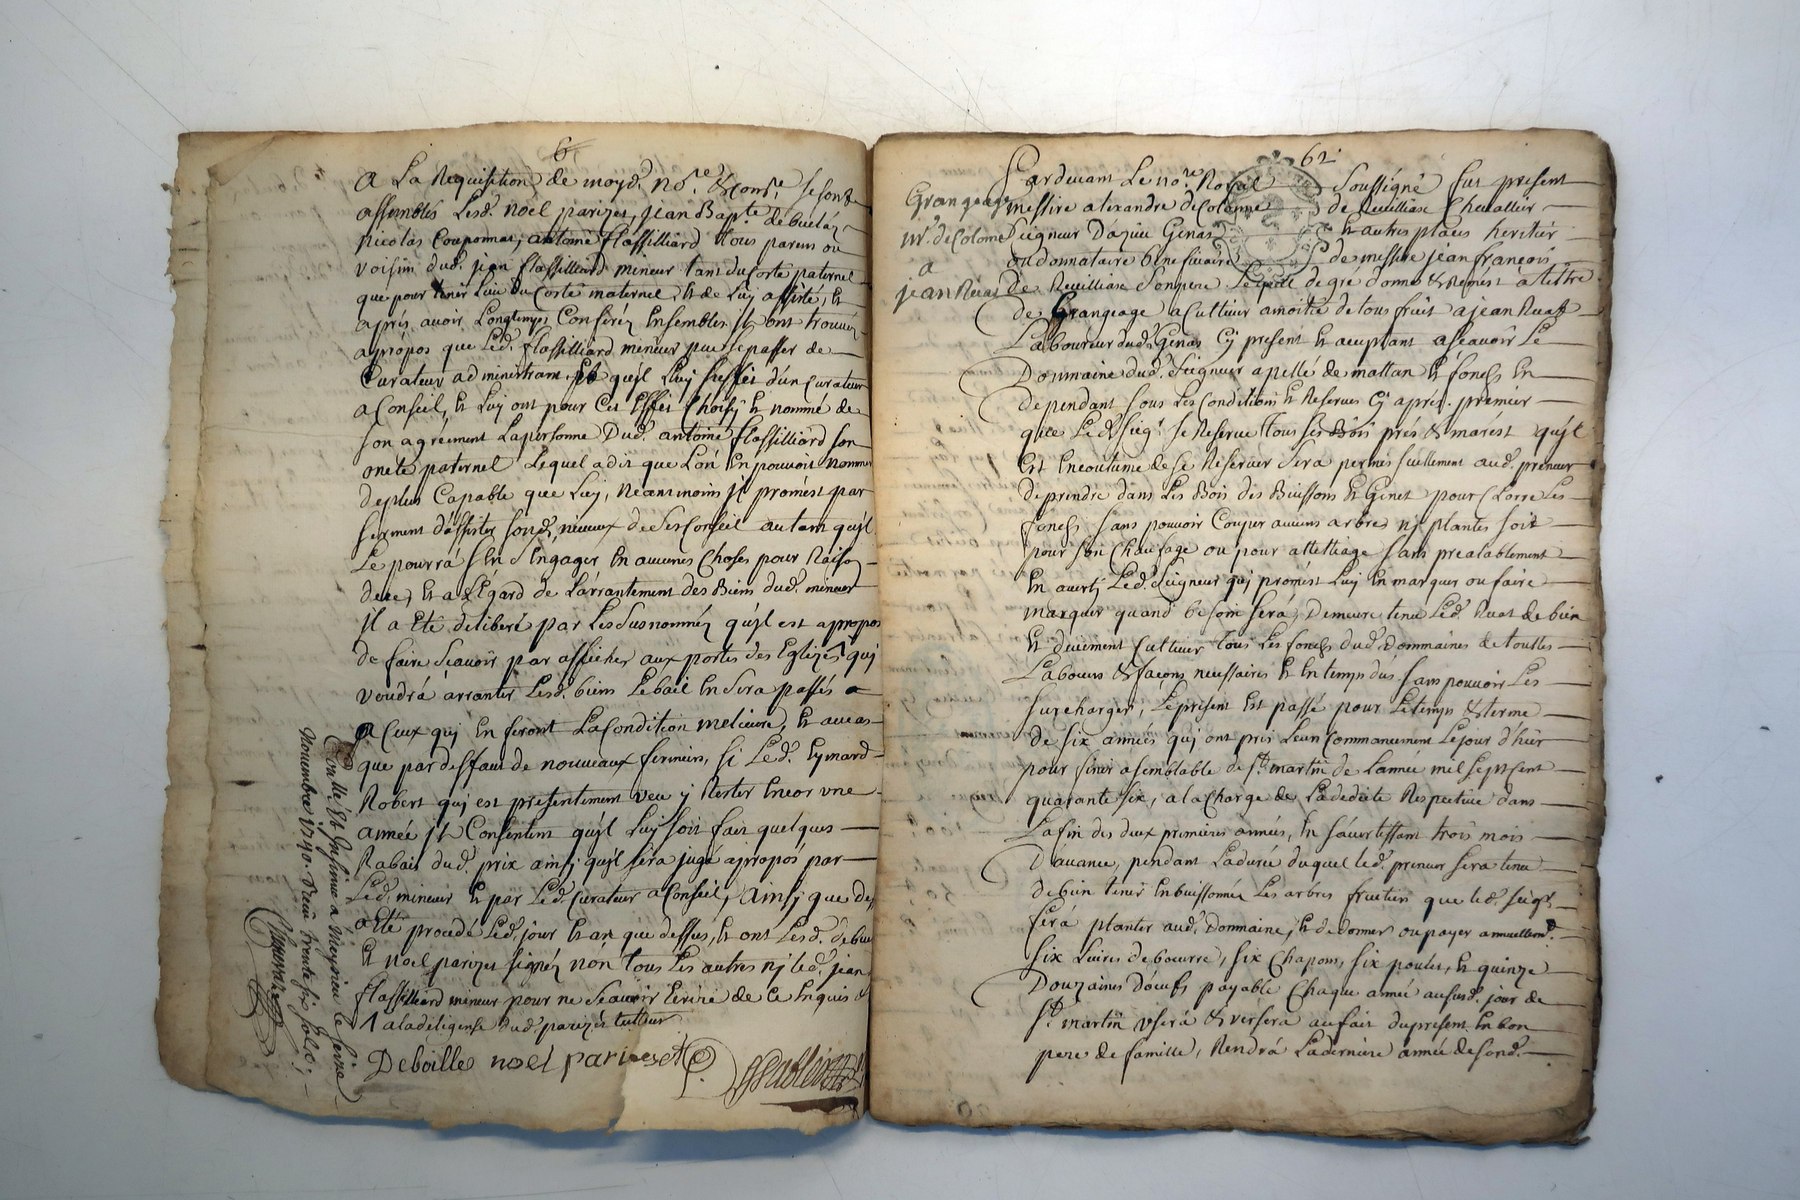 6
A La Requisition de moyd. no.re &Conse. se sont
assemblés Lesd. noel parizes, Jean Bapte. de
nicolas Couponnas, antoine flassilliard tous parens ou
voisins dud. jean flassilliard mineur tant du Corté paternel
que pour tenir Lieu du Corté maternel, et de Luy assisté, et
apres avoir Longtemps Conferéz Ensembles Jl ont trouvéz
apropos que Led. flassilliard mineur peut se passer de
Curateur administrant Et quyl Luy suffit d'un Curateur
a Conseil, Et Luy ont pour Cet Effet Choisy Et nommé de
son agrément La personne Dud. antoine flassilliard son
oncle paternel Lequel a dit que Lon En pouvoit nommer
de plus Capable que Luy, neantmoins Jl promest par
serment d'assister sond. neveux de ses Conseil autant quyl
Le pourra s En s Engager En aucunes Choses pour Raison
dece, Et a L'Egard de L'arrantement des Biens dud. mineur
Jl a Eté deliberé par Les susnomméz quyl est apropos
de faire Scavoir par affiches aux portes des Eglizes quj
voudrá arranter Lesd. biens Le bail En sera passés a
a Ceux quj En feront La Condition melieure, Et au cas
que par deffaut de nouveaux fermiers, si Led. Eymard
Robert quj est presentement veu y Rester Encor une
année Jl Consentent quyl Luy soit fait quelques
Rabais dud. prix ainsj quyl sera jugé apropos par
Led. mineur Et par Led. Curateur a Conseil, Ainsj que de
a Eté procedé Led. jour Et an que dessus, Et ont Lesd. de
Et noel parizes signéz non tous Les autres nj led. jean
flassilliard mineur pour ne Scavoir Ecrire de Ce Enquis
1 a la deligense dud. parizes tutteur
Deboille noel parizet
Controllé Et Insinué a Meyzieu le seize
Novembre 1740. Reçu trente six sols;
62.
Grangeage
Mr. de Colome
a
jean Ruas
Pardevant Le no.re Royal Soussigné fut present
messire alexandre de Colomne de Reuilliase Chevallier
Seigneur Dazieu Genas Et autres places heritier
ou donnataire beneficiaire de messire jean françois
de Reuilliase son pere Lequel de gré donne & Remest a tittre
de Grangeage a Cultiver a moitié de tous fruit a jean Ruas
Laboureur dud. Genas Cy present Et acceptant a scavoir Le
Dommaine dud. Seigneur apellé de mattan Et fonds En
dependant sous Les Conditions Et Reserves Cy apres. premier
que Led. Seigr. se Reserve tous ses Bois prés & marest quyl
Est En coutume de se Reserver Sera permis seullement aud. preneur
de prendre dans Les Bois des Buissons Et Genet pour Clorre Les
fonds sans pouvoir Couper aucuns arbres nj plantes soit
pour son Chaufage ou pour attelliage sans prealablement
En averti Led. Seigneur quj promest Luy En marquer ou faire
marquer quand besoin sera, Demeure tenu Led. Ruas de bien
Et deuement Cultiver tous Les fonds dud. Dommaines de touttes
Labours & façons necessaires Et En temps dus sans pouvoir Les
surcharger, Le present Est passé pour Le temps & terme
de six années quj ont pris Leur Commancement Le jour d'hier
pour finir a semblable de St. martin de L'année mil sept Cent
quarante six, a la Charge de La dedicte Respective dans
La fin des deux premieres années, En s'avertissant trois mois
D'avance, pendant La durée duquel led. preneur sera tenu
de bien tenir En buissonnée Les arbres fruitier que led. seigr.
ferá planter aud. Dommaine, Et de donner ou payer annuellemt.
six Livres de beurre, six Chapons, six poulets, Et quinze
Douzaines D'oeufs payable Chaque année aususd. jour de
St. martin userá & versera au fait du present En bon
pere de famille, Rendrá La derniere année de sond.